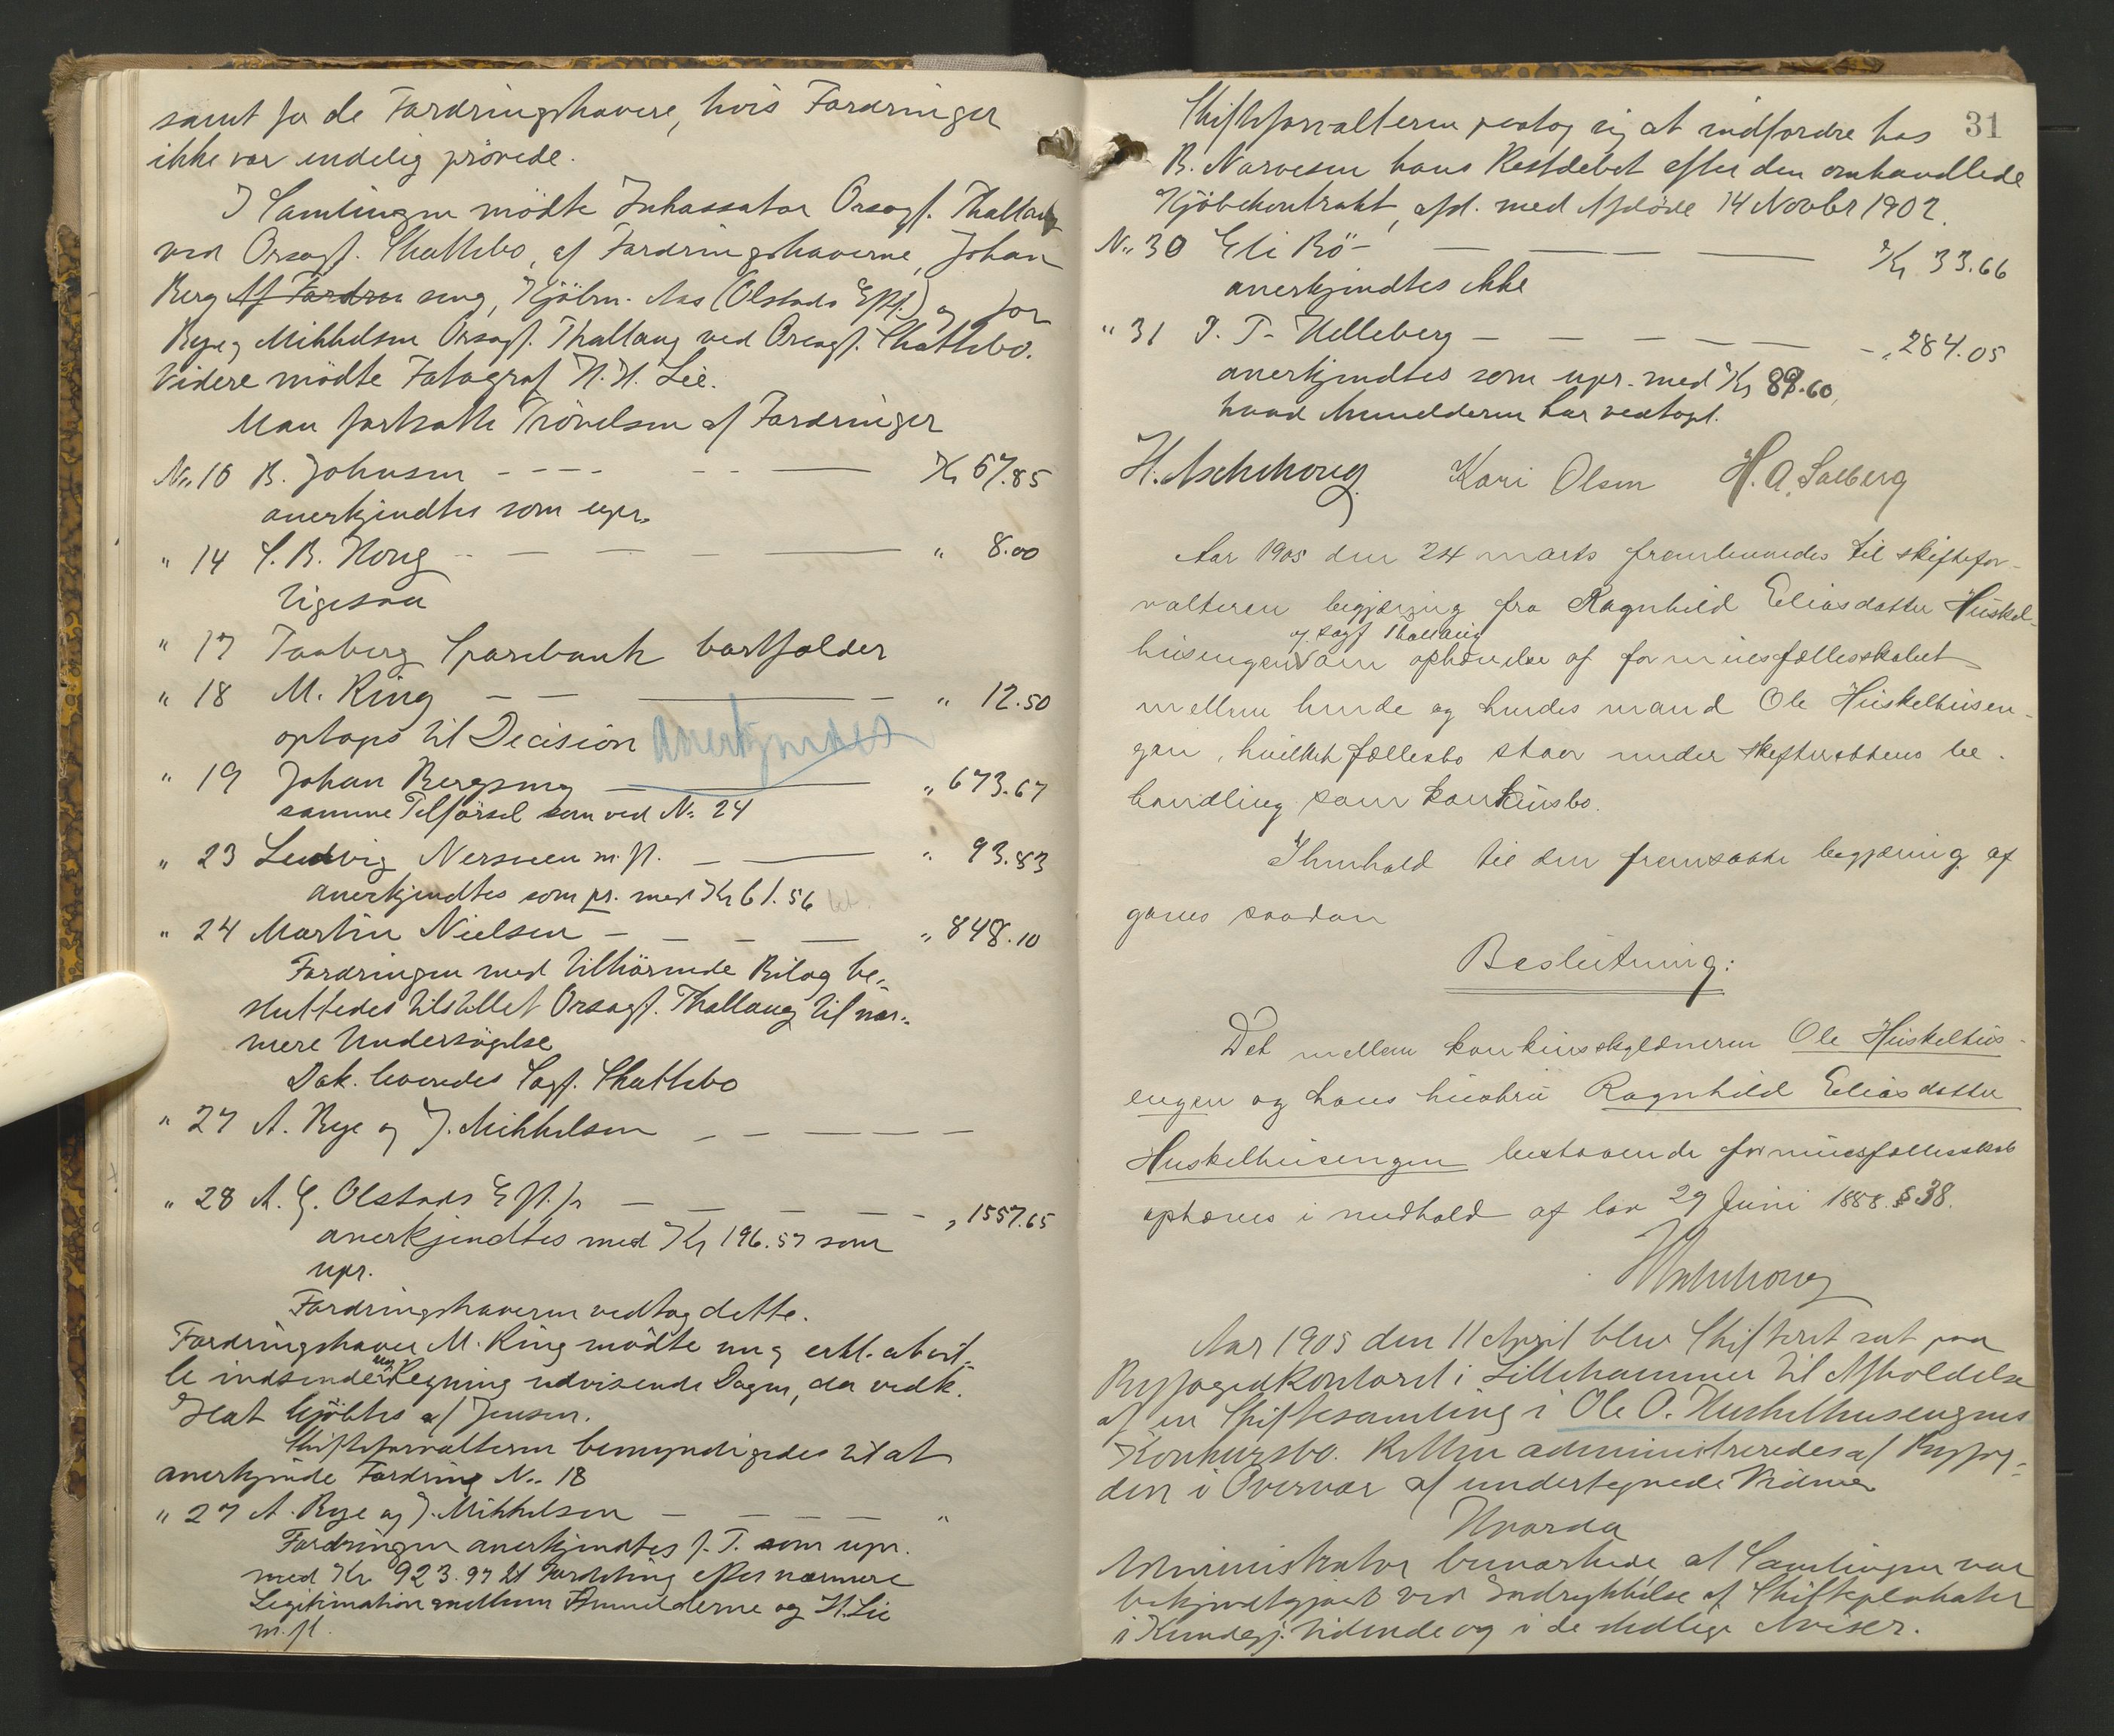 samt for de Fordringshavere, hvis Fordringer
ikke var endelig prövede.
I Samlingen mödte Inkassator Orsagf. Thallaug
ved Orsagf. Skattebo, af Fordringshaverne, Johan
Berg Af Fordru seng, Kjöbm. Aas (Olstads Eftf.) og for
Rye og Mikkelsen Orsagf. Thallaug ved Orsagf. Skattebo.
Videre mödte Fotograf H. H. Lie.
Man fortsatte Prövelsen af Fordringer
No. 10 B. Johnsen - - - - - - — Kr 57.85
anerkjendtes som upr.
" 14 S. B. Houg - - — — — — " 8.00
ligesaa
" 17 Faaberg Sparebank bortfalder
" 18 M. Ring — — — — " 12.50
optoges til Decision anerkjendes
" 19 Johan Bergseng — — " 673.67
samme Tilförsel som ved No 24
" 23 Ludvig Nersveen m. fl. — — " 93.83
anerkjendtes som pr. med Kr 61.56
" 24 Martin Nielsen — — — — " 848.10
Fordringen med tilhörende Bilag be-
sluttedes tilstillet Orsagf. Thallaug til nær-
mere Undersögelse
Dok. leveredes Sagf. Skattebo
" 27 A. Rye og J. Mikkelsen — — — — —
" 28 A. G. Olstads Eftf. — — — — — " 1557.65
anerkjendtes med Kr 196.57 som
upr.
Fordringshaveren vedtog dette.
Fordringshaver M. Ring mödte nu og erkl. at vil-
le indsende ny Regning udvisende Dagen, da vedk.
Hat kjöbtes af Jensen.
Skifteforvalteren bemyndigedes til at
anerkjende Fordring No. 18
" 27 A. Rye og J. Mikkelsen — — — — "
Fordringen anerkjendtes p. T. som upr.
med Kr 923.97 til Fordeling efter nærmere
Legitimation mellem Anmelderne og H. Lie
m. fl.
31
Skifteforvalteren paatog sig at indfordre hos
B. Narvesen hans Restdebet efter den omhandlede
Kjöbekontrakt, afsl. med Afdöde 14 Novbr 1902.
No. 30 Eli Bö — — — — Kr 33.66
anerkjendtes ikke
" 31 P. T. Helleberg — — — — — — " 284.05
anerkjendtes som upr. med Kr 89.60,
hvad Anmelderen har vedtaget.
H. Aschehoug Kari Olsen H. A. Solberg
Aar 1905 den 24 marts frembuandes til skiftefor-
valteren begjæring fra Ragnhild Eliasdatter Huskel-
og sagf Thallaug
husengen om ophævelse af formuesfællesskabet
mellem hende og hendes mand Ole Huskelhusen-
gen, hvilket fællesbo staar under skifterettens be-
handling som konkursbo.
I henhold til den fremsatte begjæring af
gaves saadan
Beslutning:
Det mellem konkursskyldneren Ole Huskelhus-
engen og hans hustru Ragnhild Eliasdatter
Huskelhusengen bestaaende formuesfællesskab
ophæves i medhold af lov 29 Juni 1888 § 38.
H Aschehoug
Aar 1905 den 11 April blev Skifteret sat paa
Byfogedkontoret i Lillehammer til Afholdelse
af en Skiftesamling i Ole O. Huskelhusengens
Konkursbo. Retten administreredes af Byfog-
den i Overvær af undertegnede Vidner
Hvorda
Administrator bemærkede, at Samlingen var
bekjendtgjort ved Indrykkelse af Skifteplakater
i Kundgj. tidende og i de stedlige Aviser.